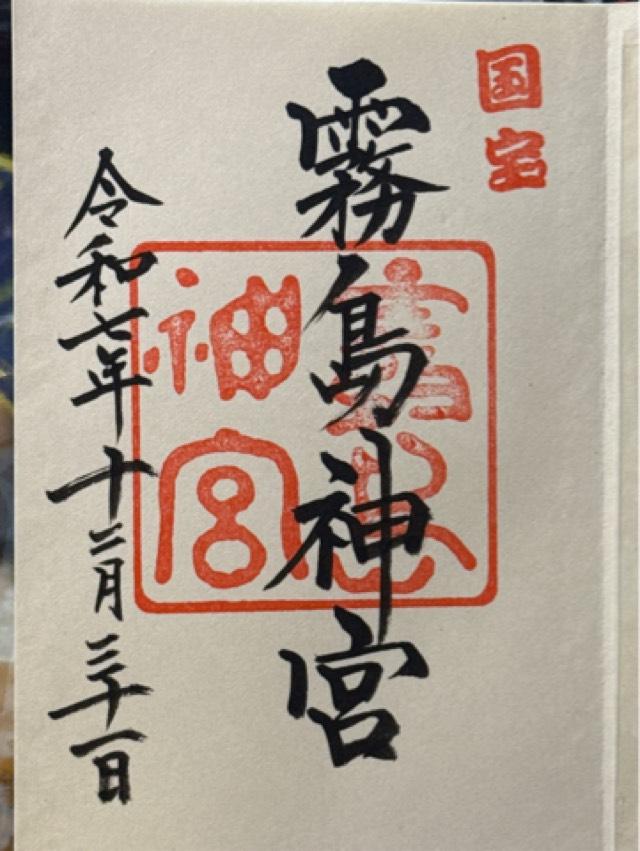 国宝
霧島神宮
神宮
令和七年十二月三十一日